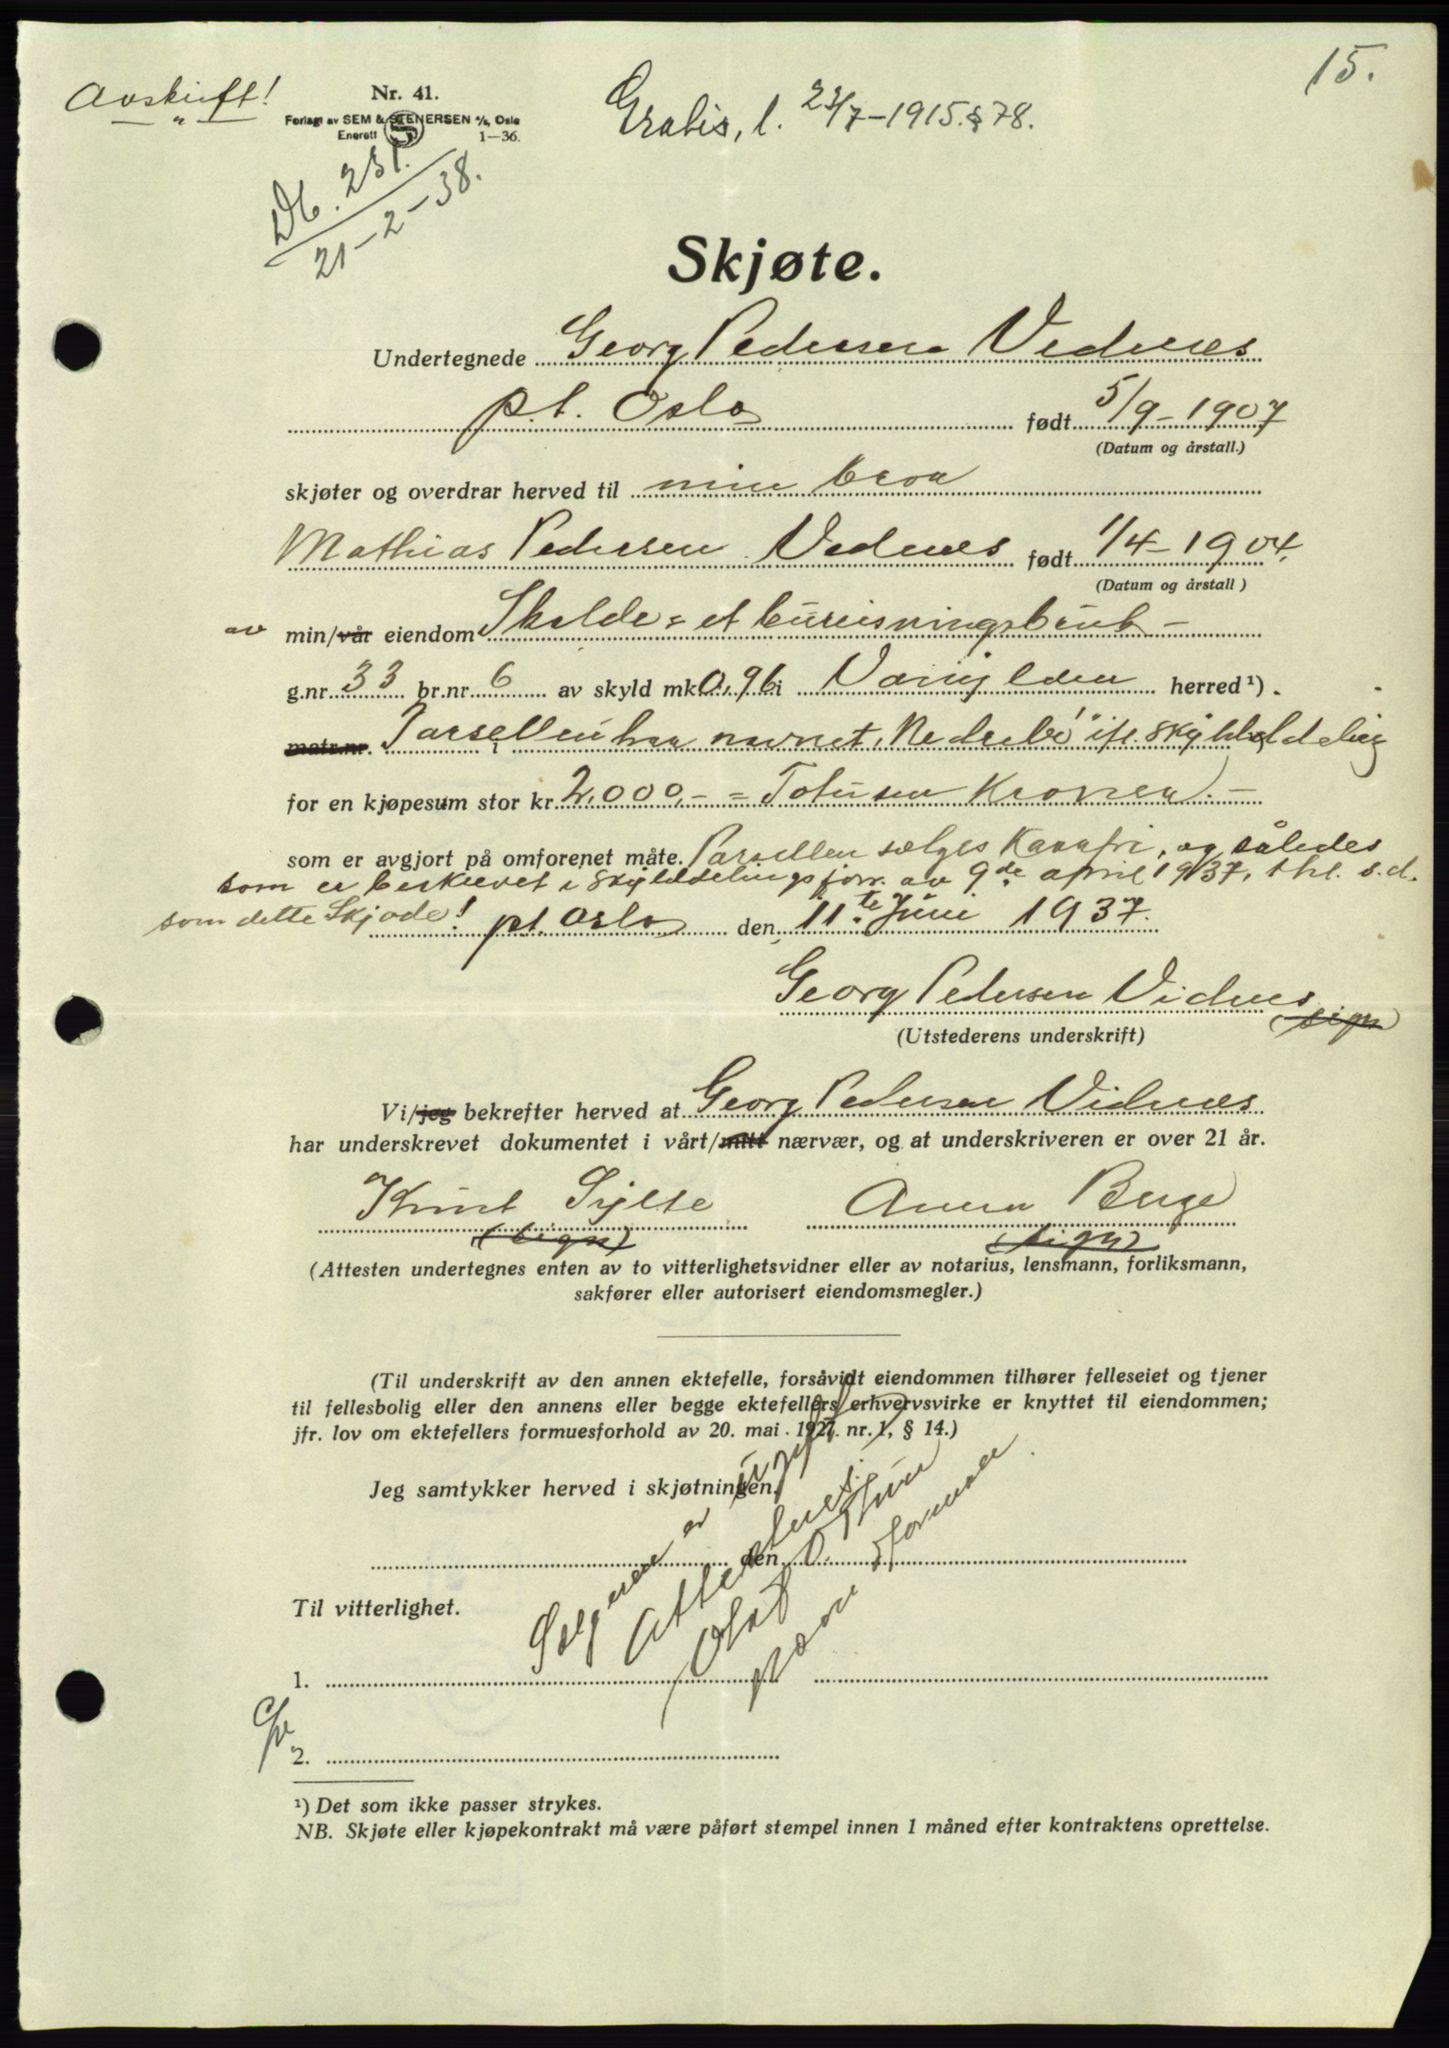 15.
Avskrift!
Nr. 41.
Forlagt av SEM & STENERSEN A/S, Oslo
Enerett 1—36.
Gratis, l. 23/7–1915. § 78.
Db. 231.
21–2–38.
Skjøte.
Undertegnede Georg Pedersen Vidnes
pt. Oslo født 5/9–1907
(Datum og årstall.)
skjøter og overdrar herved til min bror
Mathias Pedersen Vidnes født 1/4–1904.
(Datum og årstall)
av min/vår eiendom Skalde = et bureisningsbruk –
g.nr. 33 br.nr. 6 av skyld mk 0,96 i Vanylven herred¹).
matr.nr. Parsellen har navnet, Nedrebø ifl. skylddeling
for en kjøpesum stor kr. 2.000,– = Totusen Kroner. –
som er avgjort på omforenet måte. Parsellen selges kårfri, og således
som er beskrevet i skylddelingsforr. av 9de april 1937, thl. s.d.
som dette Skjøde! pt. Oslo den 11te Juni 1937.
Georg Pedersen Vidnes
(sign)
(Utstederens underskrift)
Vi/jeg bekrefter herved at Georg Pedersen Vidnes
har underskrevet dokumentet i vårt/mitt nærvær, og at underskriveren er over 21 år.
Knut Sylte Anna Berge
(sign) (sign)
(Attesten undertegnes enten av to vitterlighetsvidner eller av notarius, lensmann, forliksmann,
sakfører eller autorisert eiendomsmegler.)
(Til underskrift av den annen ektefelle, forsåvidt eiendommen tilhører felleseiet og tjener
til fellesbolig eller den annens eller begge ektefellers erhvervsvirke er knyttet til eiendommen;
jfr. lov om ektefellers formuesforhold av 20. mai 1927. nr. 1, § 14.)
Jeg samtykker herved i skjøtningen.
den
Selgeren er ugift
Attesteres:
Olaf O. Thue
Til vitterlighet.
1.
2.
¹) Det som ikke passer strykes.
NB. Skjøte eller kjøpekontrakt må være påført stempel innen 1 måned efter kontraktens oprettelse.